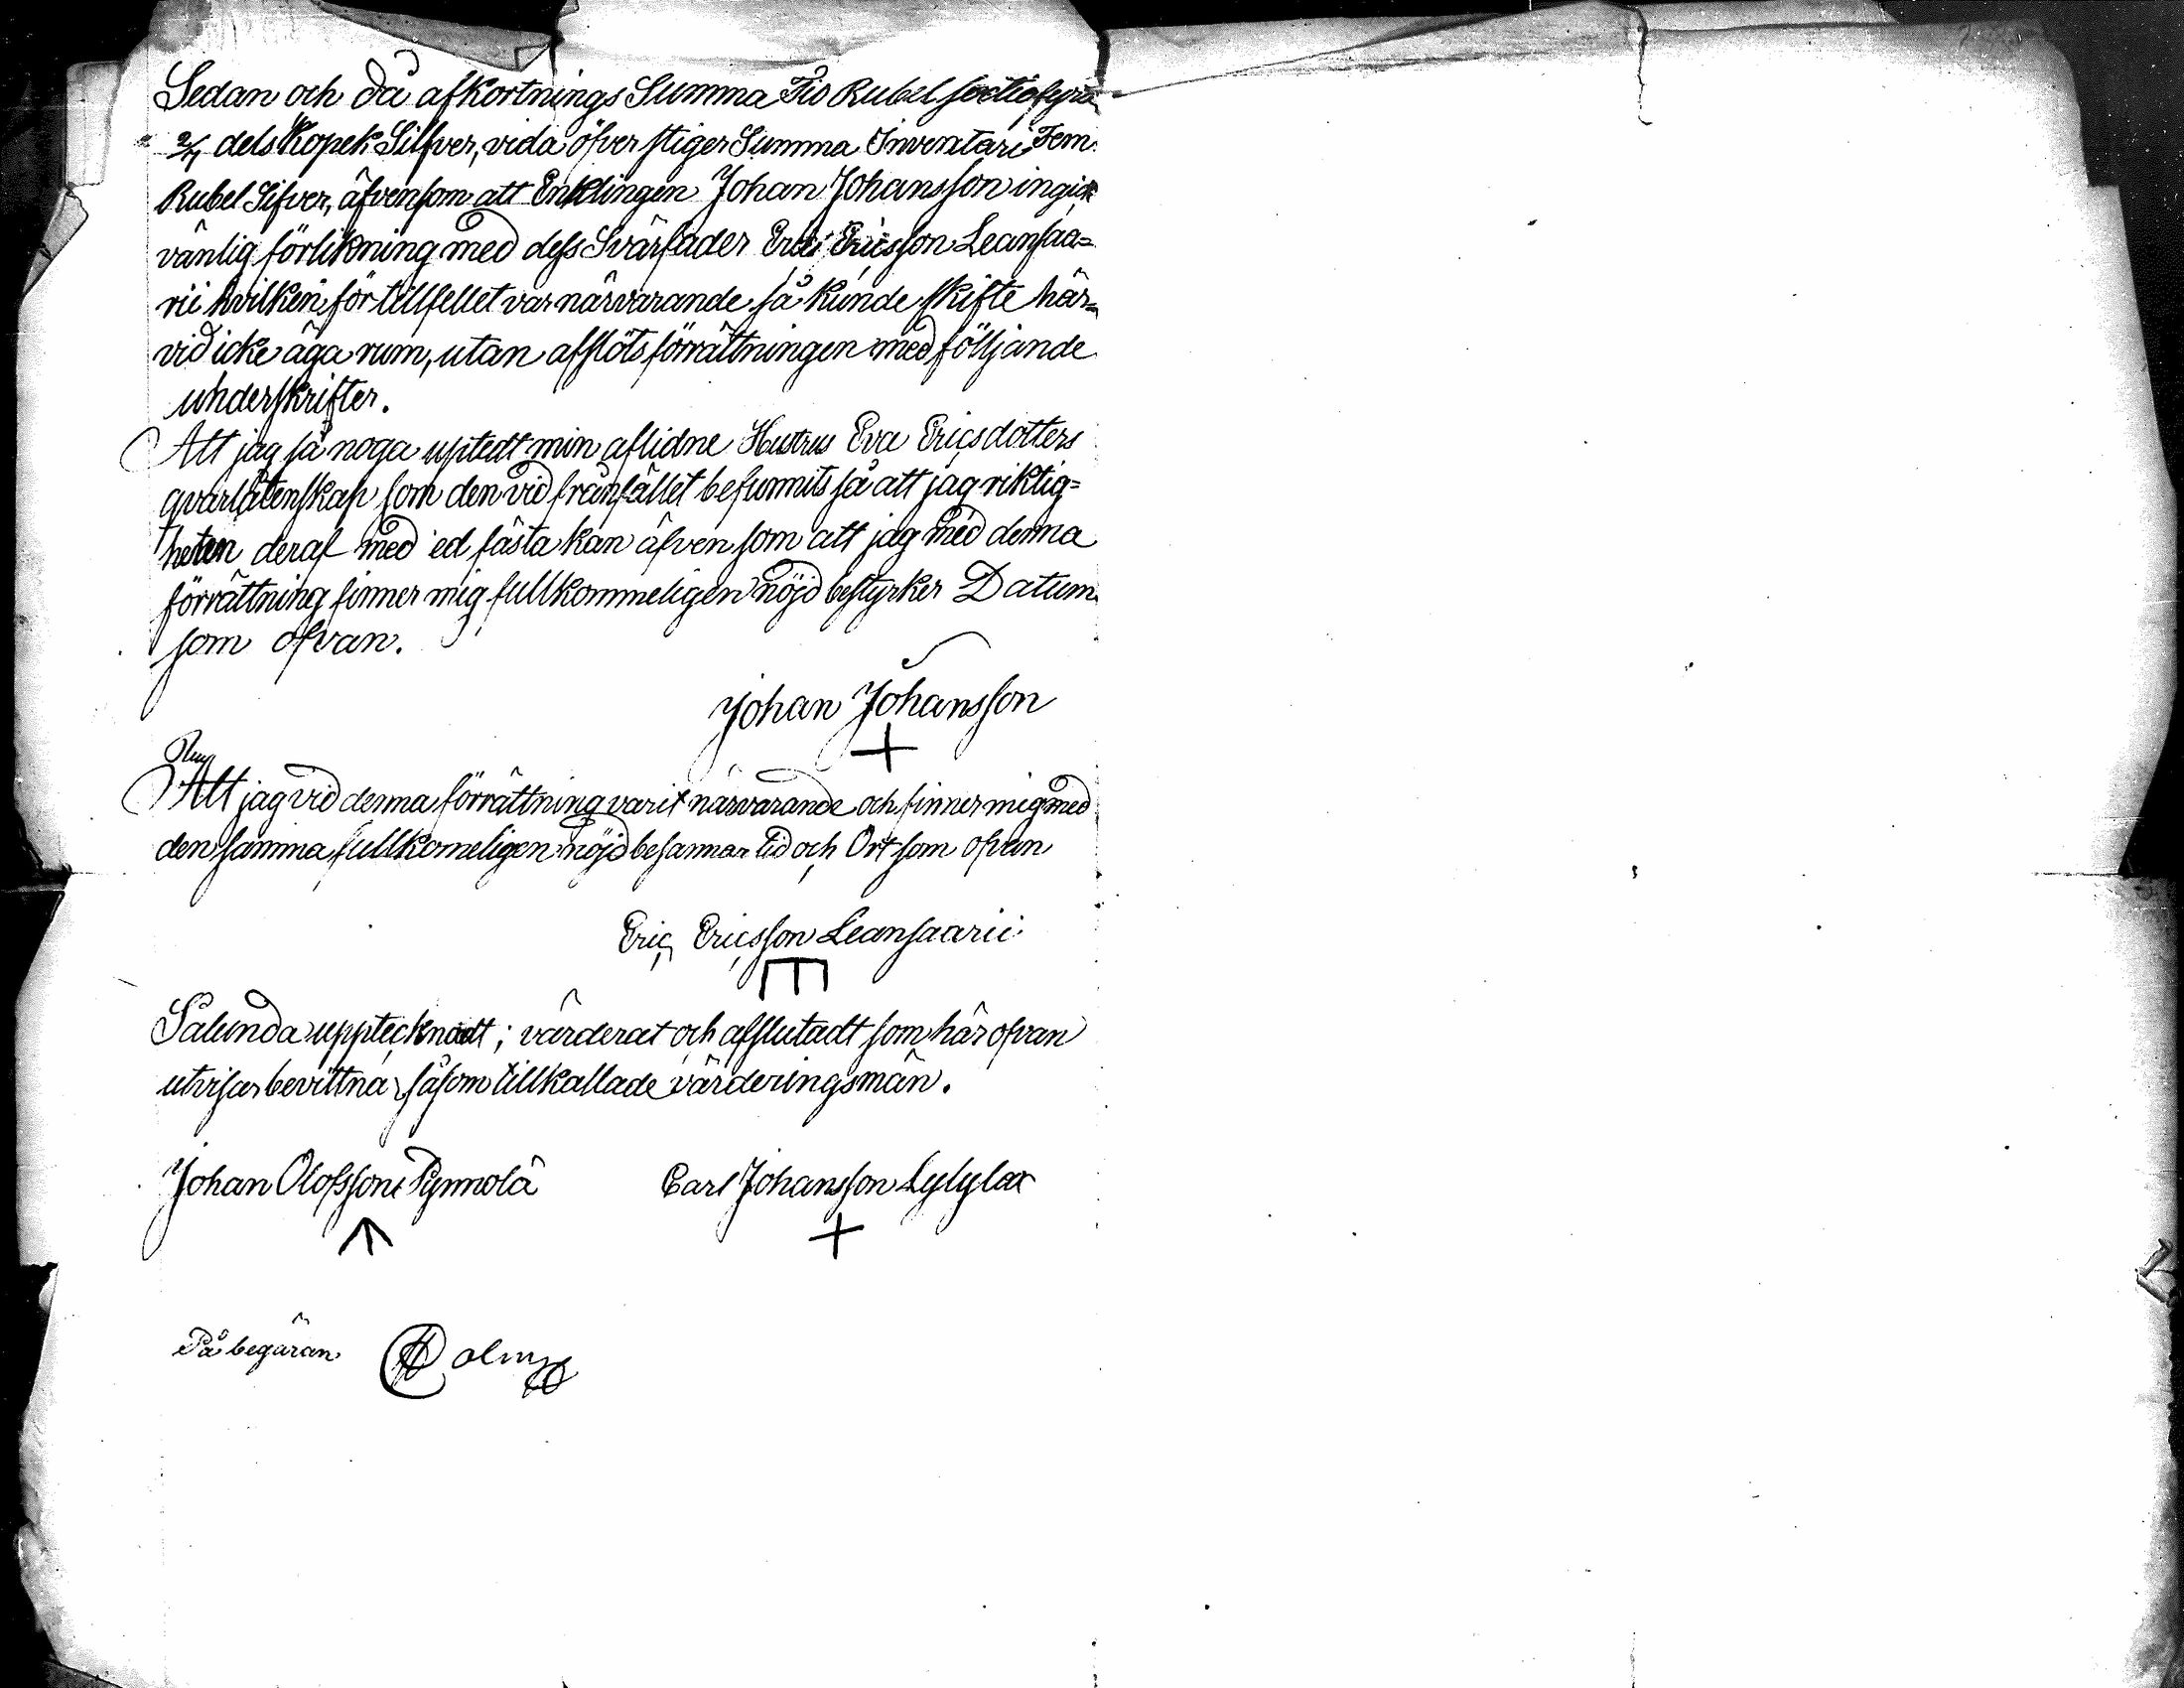 Sedan och då afkortnings Summa Tio Rubel sextiofyra
2/7 dels Kopek Silfver, vida öfver stiger Summa Inventarii Fem
Rubel Silfver, äfvensom att Enklingen Johan Johansson ingick
vänlig förlikning med dess Svärfader Eric Ericsson Leansaa=
rii hvilken för tillfellet var närvarande så kunde skifte här=
vid icke äga rum, utan afslöts förrättningen med följande
underskrifter.
Att jag så noga uptedt min aflidne Hustrus Eva Ericsdotters
qvarlåtenskap som den vid frånfället befunnits så att jag riktig=
heten deraf med ed fästa kan äfvensom att jag med denna
förrättning finner mig fullkommeligen nöjd bestyrker Datum
som ofvan.
Johan Johansson
Att jag vid denna förrättning varit närvarande och finner mig med
den samma fullkomeligen nöjd besannar tid och Ort som ofvan
Eric Ericsson Leansaarii
Sålunda upptecknadt; värderat och afslutadt som här ofvan
utvisar bevittna såsom tillkallade värderingsmän.
Johan Olofsson Pynnolä Carl Johansson Lylylax
På begäran Holm